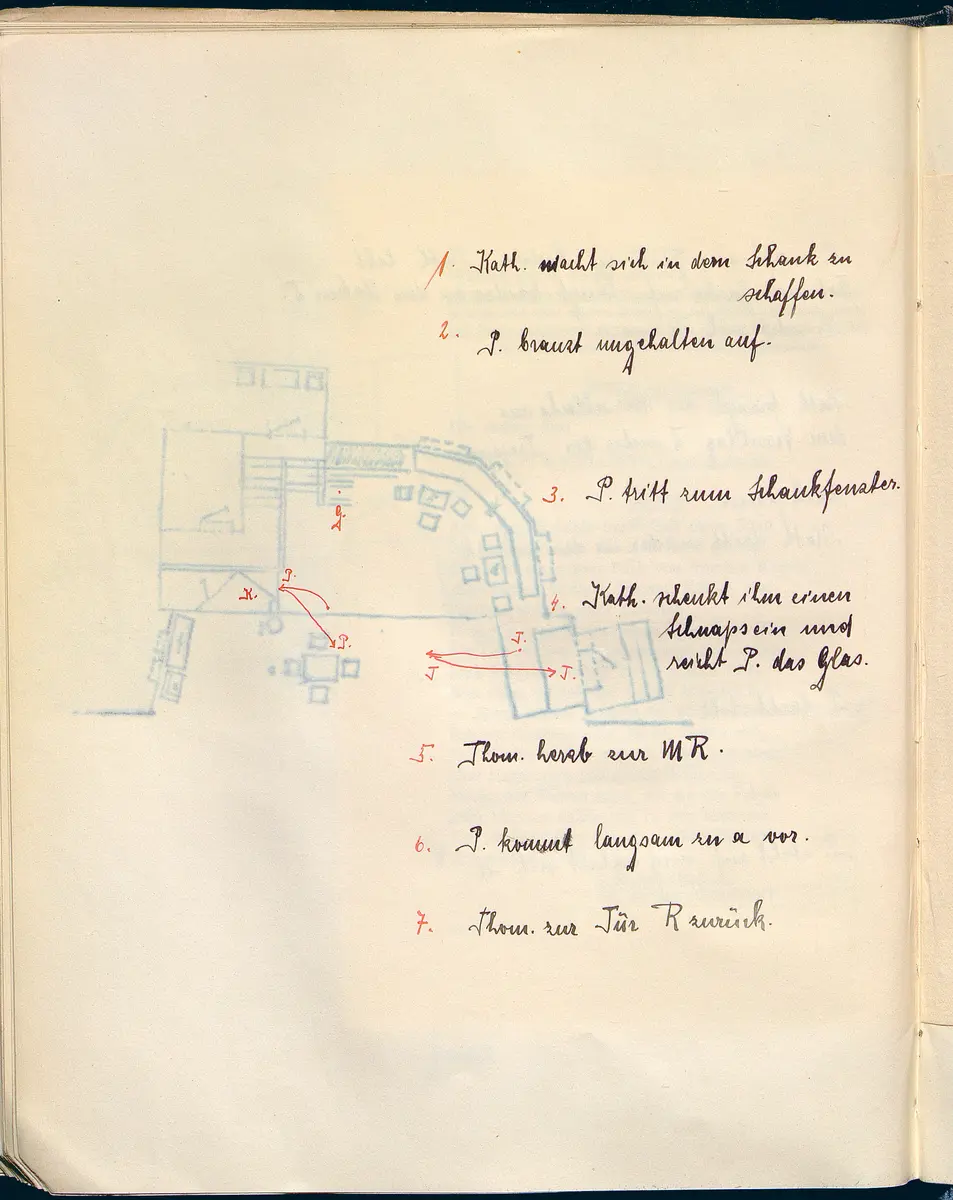 1. Kath. macht sich in dem Schank zu
schaffen.
2. P. braust ungehalten auf.
3. P. tritt zum Schankfenster.
g.
P.
K.
P.
4. Kath. schenkt ihm einen
Schnaps ein und
reicht P. das Glas.
T.
T
T.
a
5. Thom. herab zur MR.
6. P. kommt langsam zu a vor.
7. Thom. zur Tür R zurück.